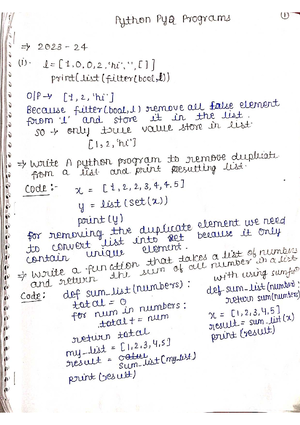 Python PyQ Programs
①
⇒ 2023-24
(i). l = [1,0,0,2,'hi','',[]]
print(list(filter(bool,l))
O/P→ [1,2,'hi']
Because filter(bool,l) remove all false element
from 'l' and store it in the list.
SO → only true value store in list.
[1,2,'hi']
⇒ Write A python program to remove duplicate
from a list and print resulting list.
Code:- x = [1,2,2,3,4,4,5]
y = list(set(x))
print(y)
for removing the duplicate element we need
to convert list into set because it only
contain unique element.
⇒ Write a function that takes a list of numbers
and return the sum of all number in a list
with using sum
Code: def sum_list(numbers):
total = 0
for num in numbers:
total += num
return total
my_list = [1,2,3,4,5]
result =
sum_list(my_list)
print(result)
def sum_list(number):
return sum(numbers)
x = [1,2,3,4,5]
result = sum_list(x)
print(result)